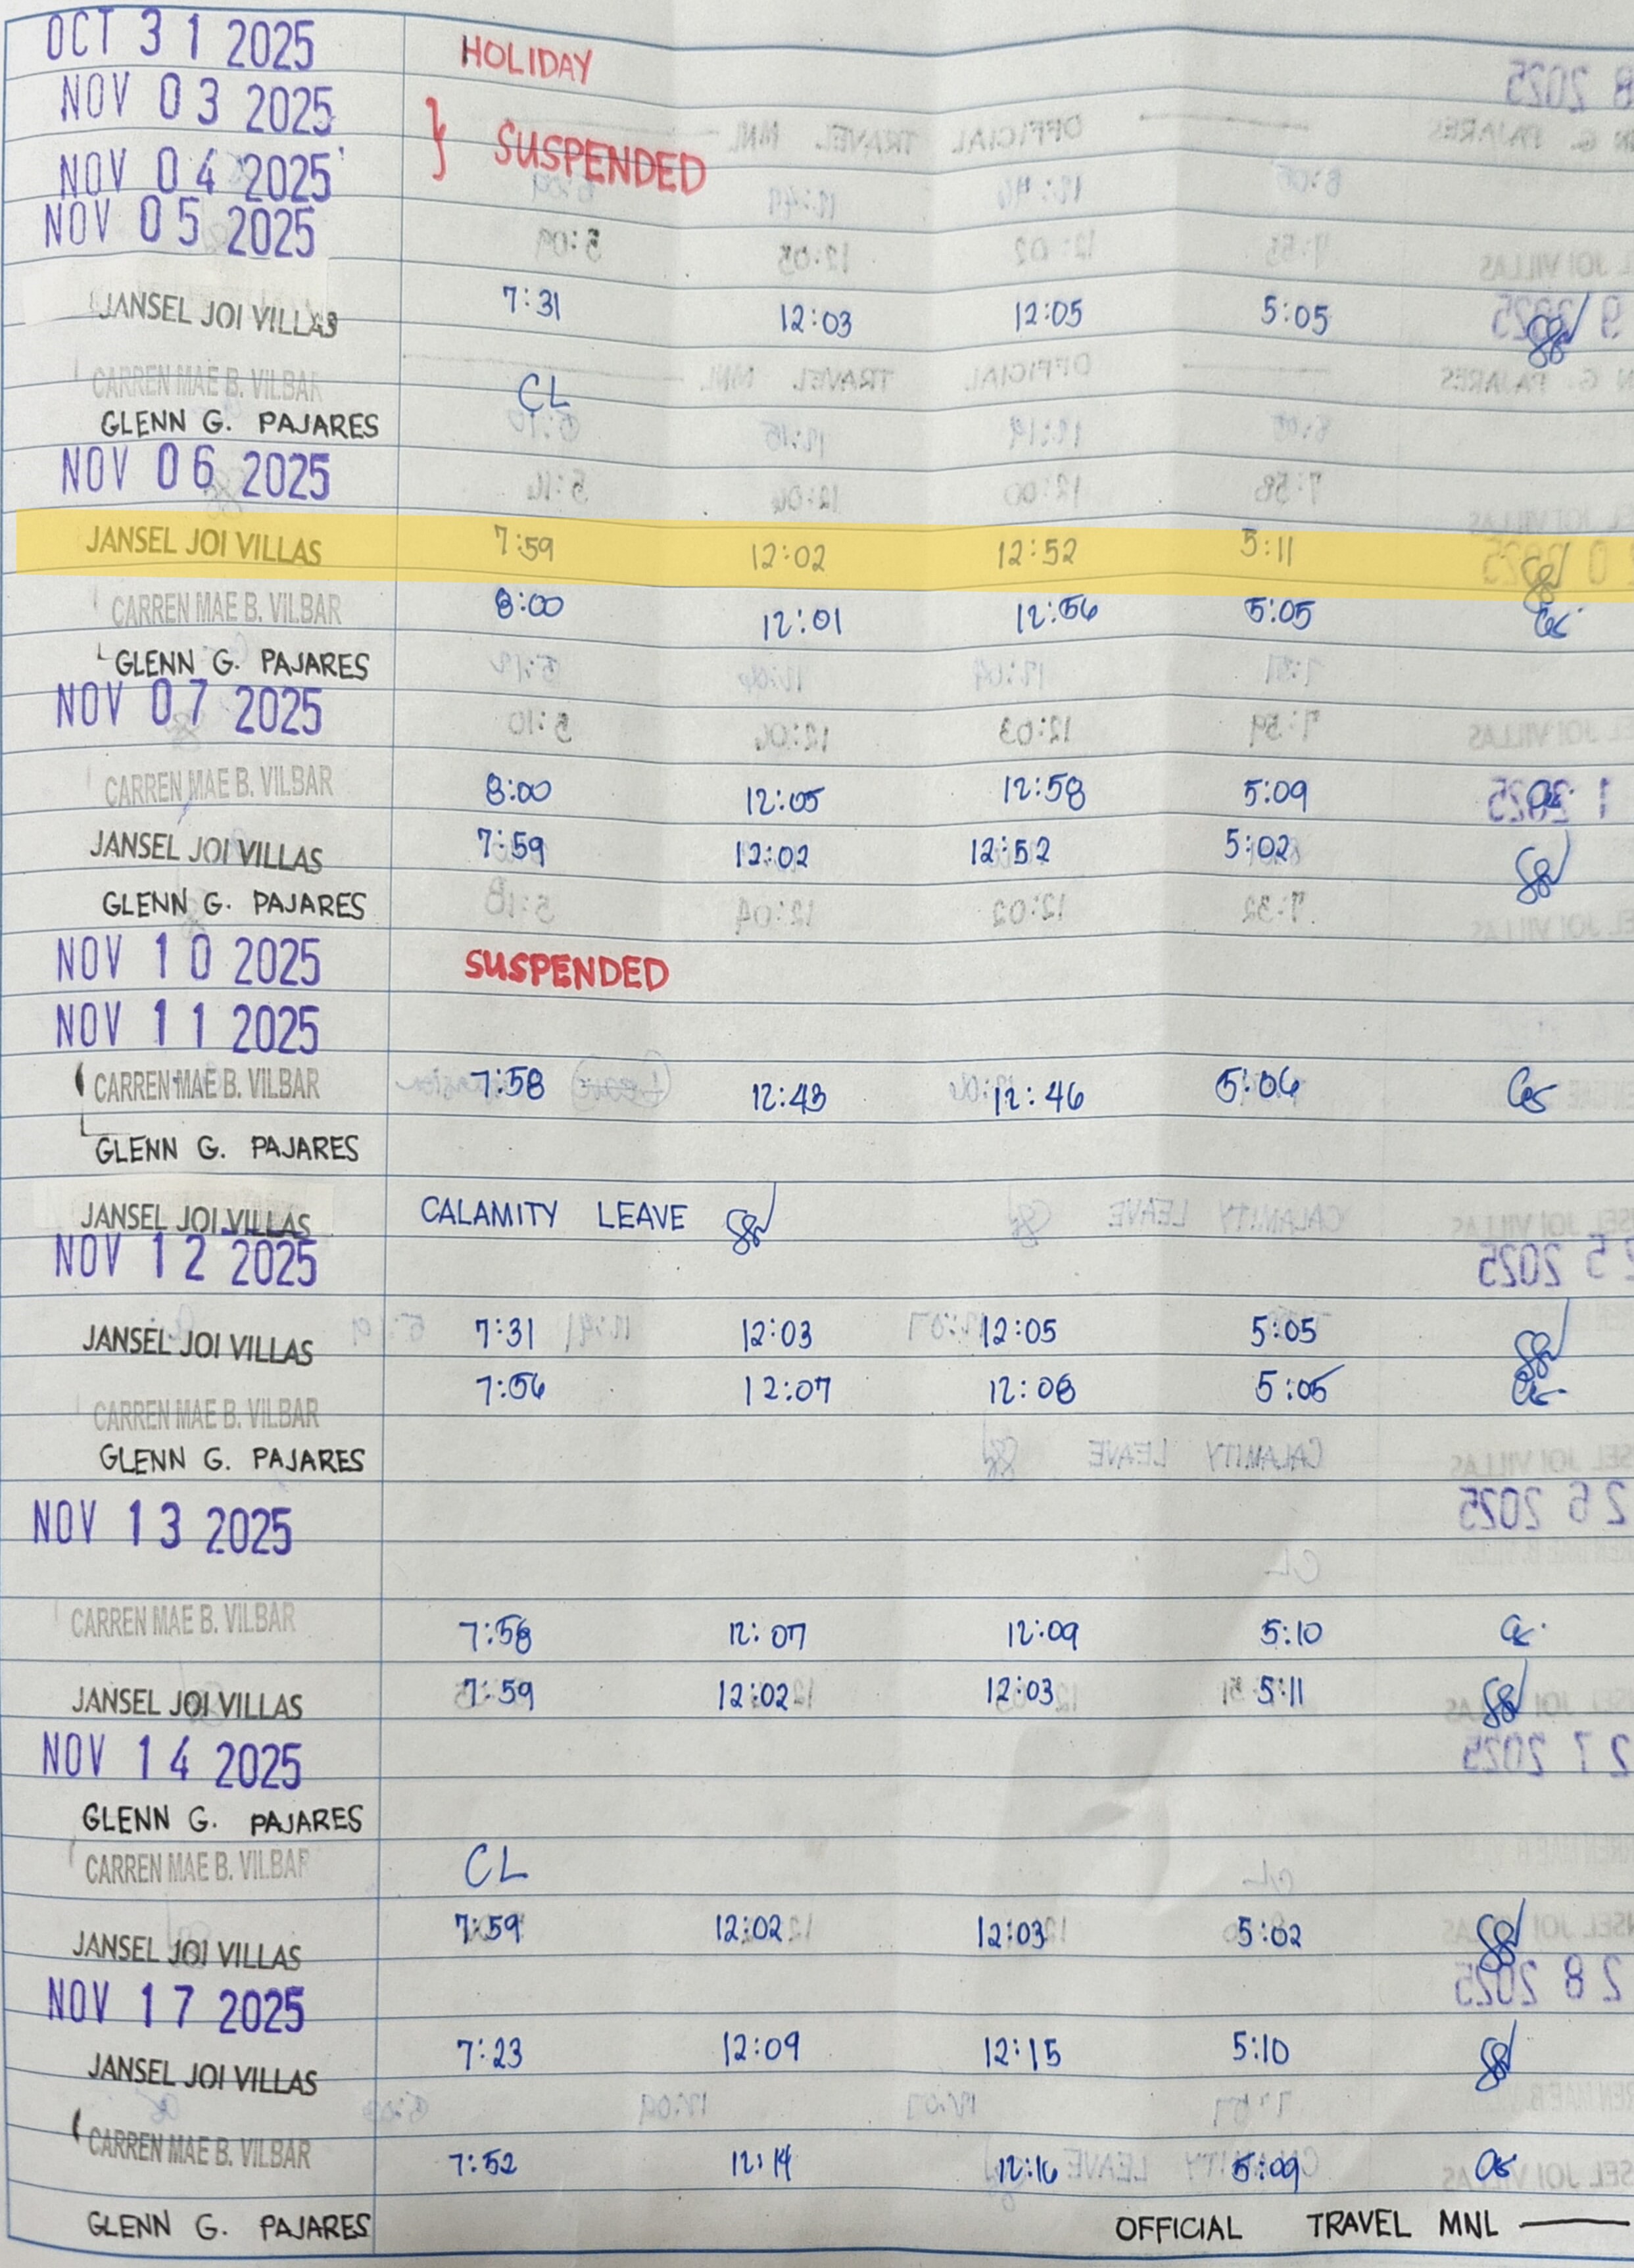 OCT 31 2025 HOLIDAY
NOV 03 2025
} SUSPENDED
NOV 04 2025
NOV 05 2025
JANSEL JOI VILLAS 7:31 12:03 12:05 5:05
CARREN MAE B. VILBAR CL
GLENN G. PAJARES
NOV 06 2025
JANSEL JOI VILLAS 7:59 12:02 12:52 5:11
CARREN MAE B. VILBAR 8:00 12:01 12:56 5:05
GLENN G. PAJARES
NOV 07 2025
CARREN MAE B. VILBAR 8:00 12:05 12:58 5:09
JANSEL JOI VILLAS 7:59 12:02 12:52 5:02
GLENN G. PAJARES
NOV 10 2025 SUSPENDED
NOV 11 2025
CARREN MAE B. VILBAR 7:58 12:43 12:46 5:06
GLENN G. PAJARES
JANSEL JOI VILLAS CALAMITY LEAVE
NOV 12 2025
JANSEL JOI VILLAS 7:31 12:03 12:05 5:05
CARREN MAE B. VILBAR 7:56 12:07 12:08 5:05
GLENN G. PAJARES
NOV 13 2025
CARREN MAE B. VILBAR 7:58 12:07 12:09 5:10
JANSEL JOI VILLAS 7:59 12:02 12:03 5:11
NOV 14 2025
GLENN G. PAJARES
CARREN MAE B. VILBAR CL
JANSEL JOI VILLAS 7:59 12:02 12:03 5:02
NOV 17 2025
JANSEL JOI VILLAS 7:23 12:09 12:15 5:10
CARREN MAE B. VILBAR 7:52 12:14 12:16 5:09
GLENN G. PAJARES OFFICIAL TRAVEL MNL